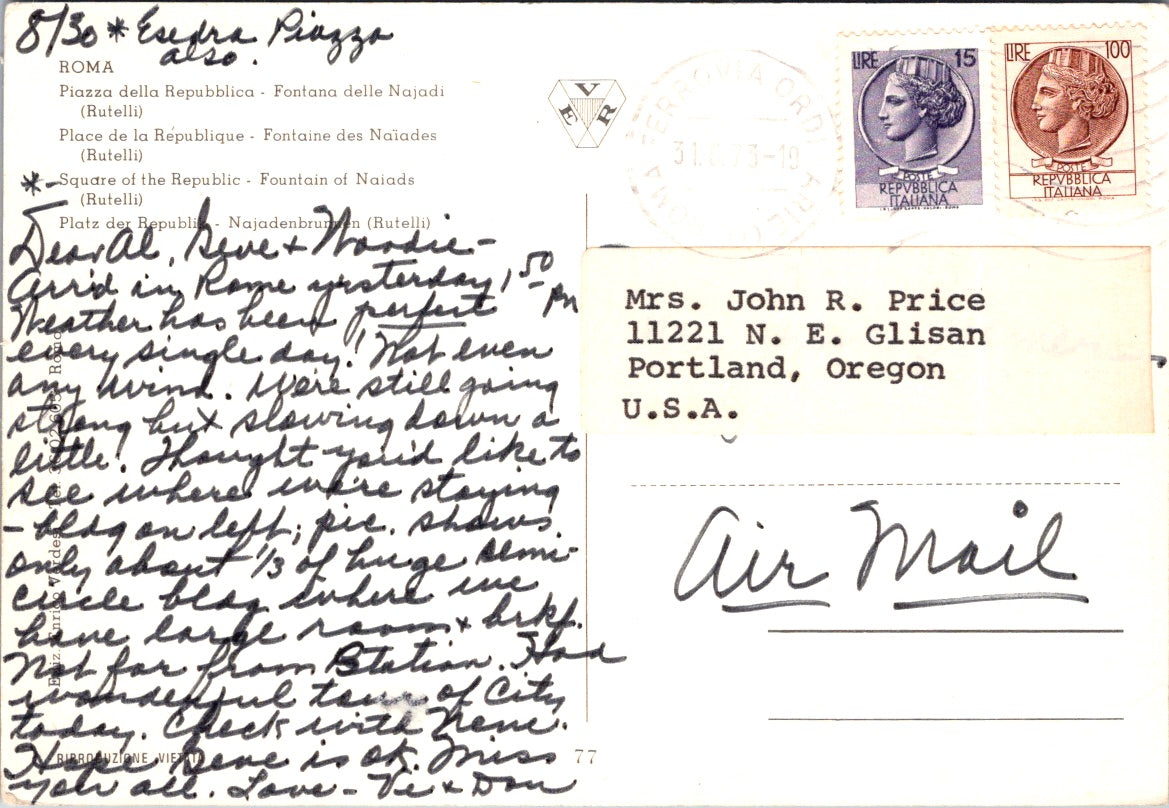 8/30 * Esedra Piazza
also.
ROMA
Piazza della Repubblica - Fontana delle Najadi
(Rutelli)
Place de la République - Fontaine des Naïades
(Rutelli)
*- Square of the Republic - Fountain of Naiads
(Rutelli)
Platz der Republik - Najadenbrunnen (Rutelli)
Dear Al, Geve + Woodie -
Arr'd in Rome yesterday, 1:50 PM
Weather has been perfect
every single day! Not even
any wind. We're still going
strong but slowing down a
little! Thought you'd like to
see where we're staying
- bldg on left; pic. shows
only about 1/3 of huge semi-
circle bldg where we
have large room + brkf.
Not far from Station. Had
wonderful tour of City
today. Check with Nene.
Hope Geve is ok. Miss
you all. Love - Vi + Don
RIPRODUZIONE VIETATA
77
VER
FERROVIA ORD
31.8.73-19
LIRE 15
POSTE
REPVBBLICA
ITALIANA
LIRE 100
POSTE
REPVBBLICA
ITALIANA
Mrs. John R. Price
11221 N. E. Glisan
Portland, Oregon
U.S.A.
Air Mail